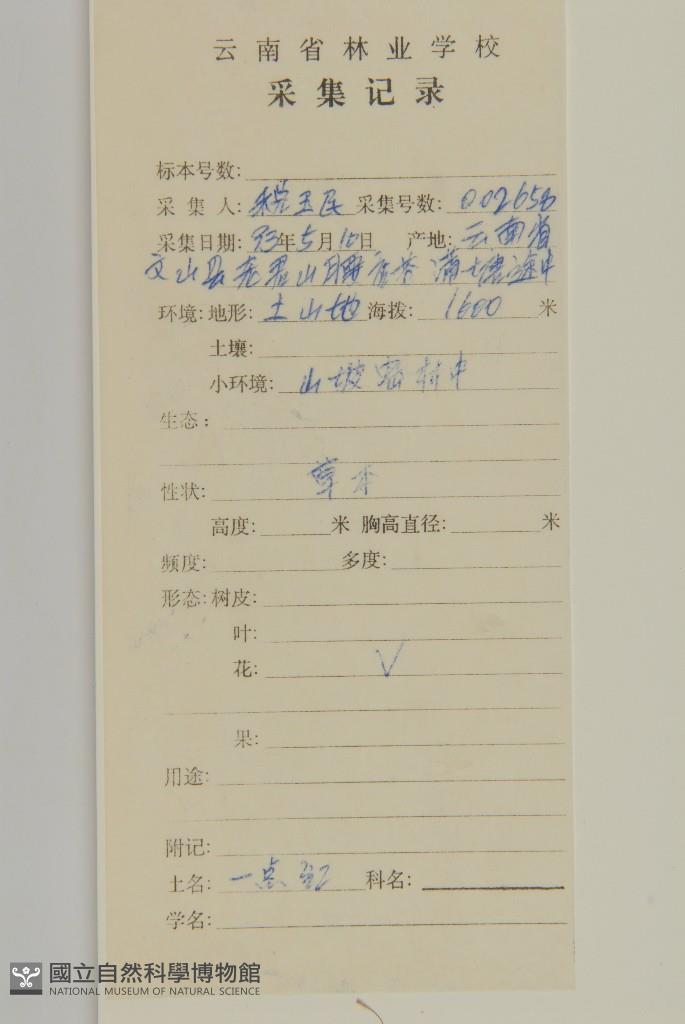 云南省林业学校
采集记录
标本号数:
采集人: 税玉民 采集号数: 002656
采集日期: 93年5月10日 产地: 云南省
文山县老君山 途中
环境: 地形: 土山地 海拨: 1600 米
土壤:
小环境: 山坡密林中
生态:
性状: 草本
高度: 米 胸高直径: 米
频度: 多度:
形态: 树皮:
叶:
花: √
果:
用途:
附记:
土名: 一点红 科名:
学名:
國立自然科學博物館
NATIONAL MUSEUM OF NATURAL SCIENCE